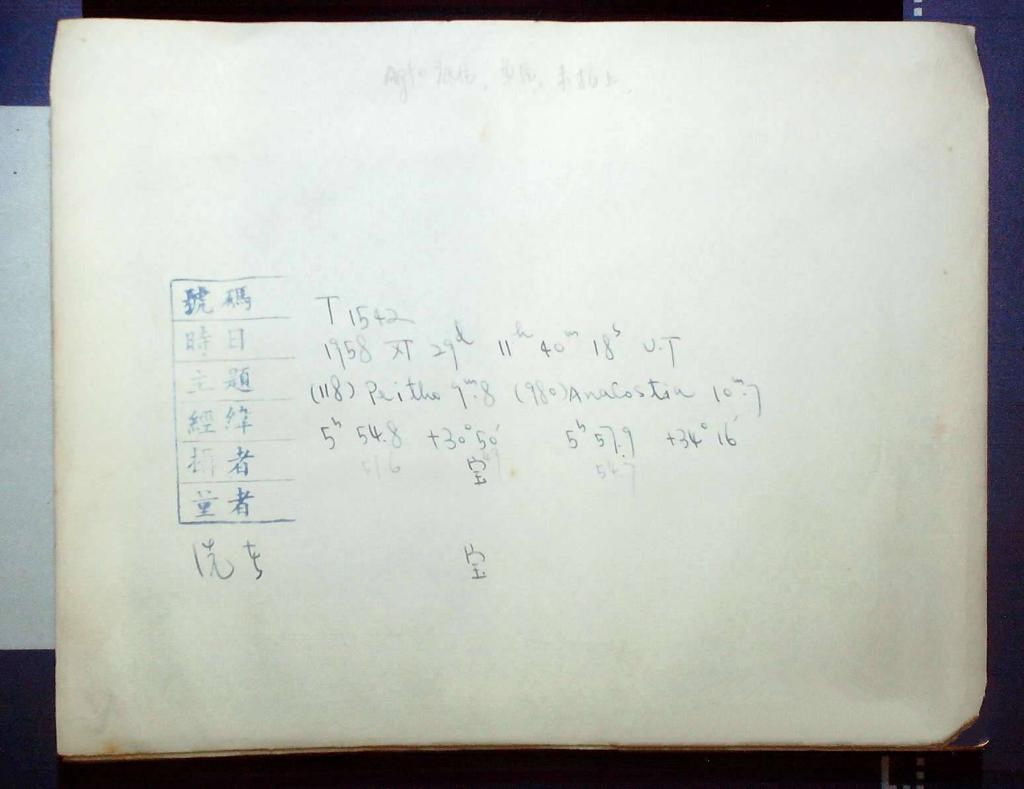 號碼 T 1542
時日 1958 XI 29d 11h 40m 18s U.T
主題 (118) Peitho 9m.8 (980) Anacostia 10m.7
經緯 5h 54.8 +30°50' 5h 57.9 +34°16'
攝者 宝
量者
洗者 宝